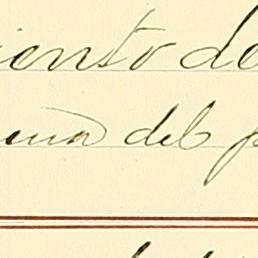 iento de
ena del p